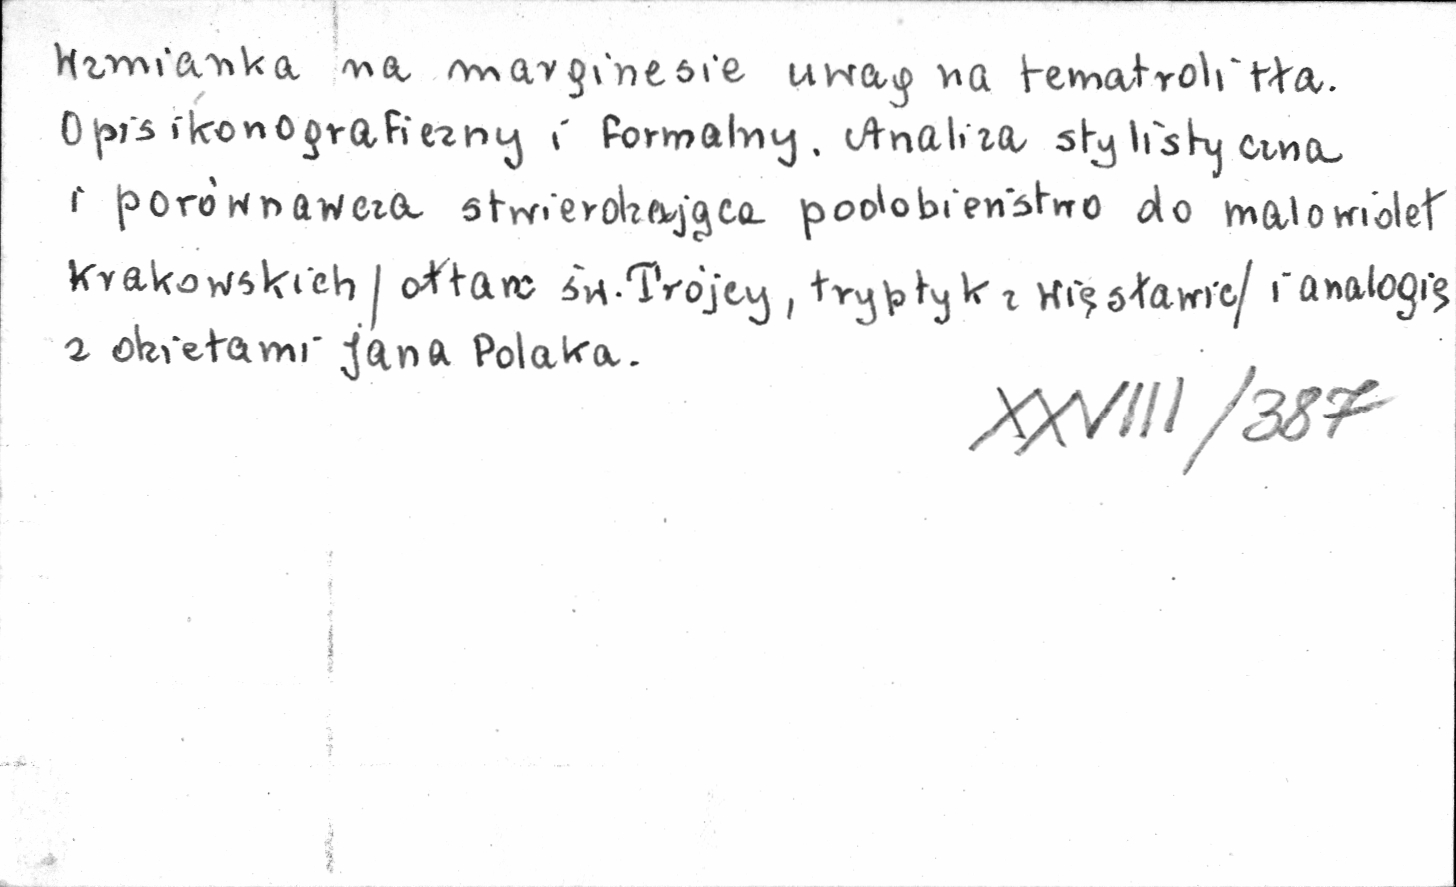 Wzmianka na marginesie uwag na temat roli tła.
Opis ikonograficzny i formalny. Analiza stylistyczna
i porównawcza stwierdzająca podobieństwo do malowideł
krakowskich/ ołtarz św. Trójcy, tryptyk z Więsławic/ i analogię
z dziełami Jana Polaka.
XXVIII/387